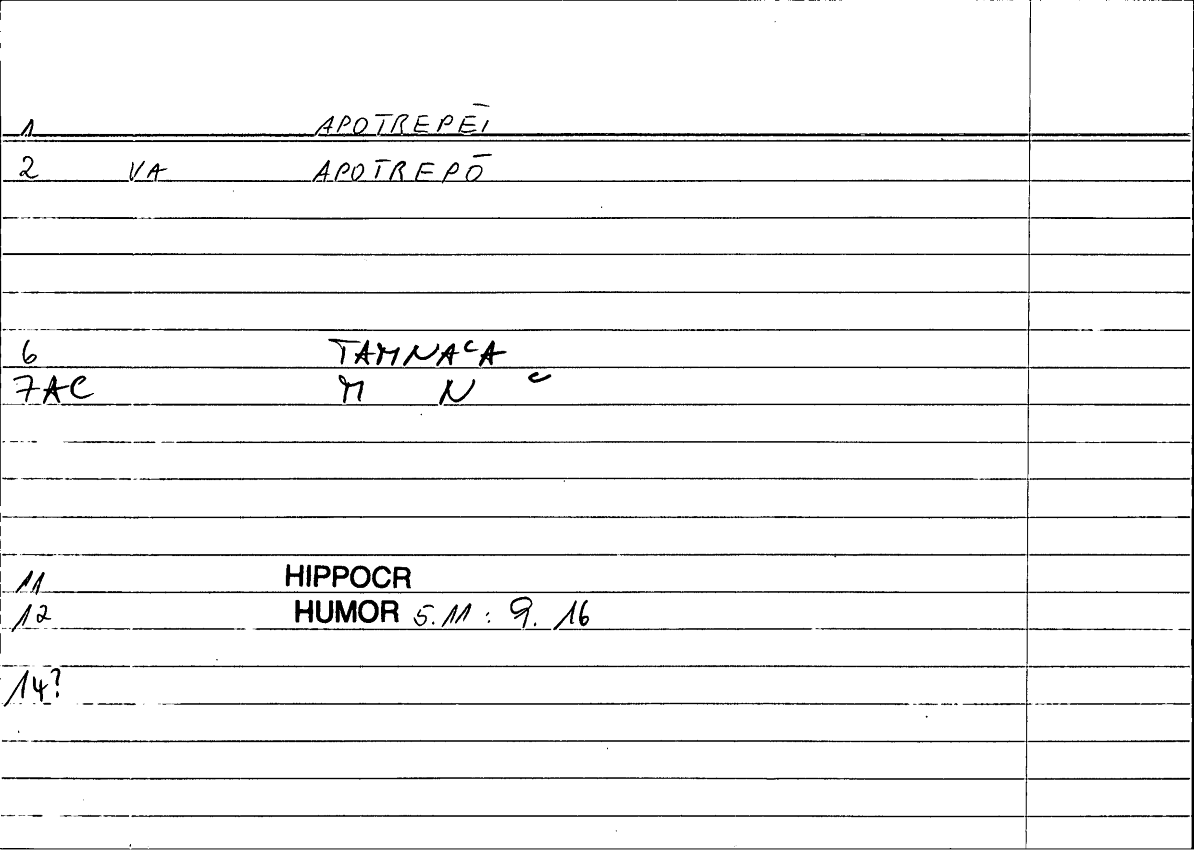 1 APOTREPEĪ
2 VA APOTREPŌ
6 TAMNAᶜA
7AC M N ᶜ
11 HIPPOCR
12 HUMOR 5.11 : 9. 16
14?